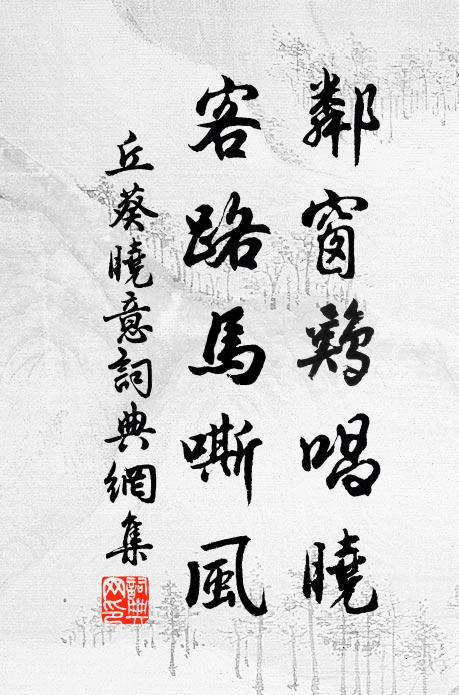 鄰窗鷄唱曉
客路馬嘶風
丘葵曉意詞典網集